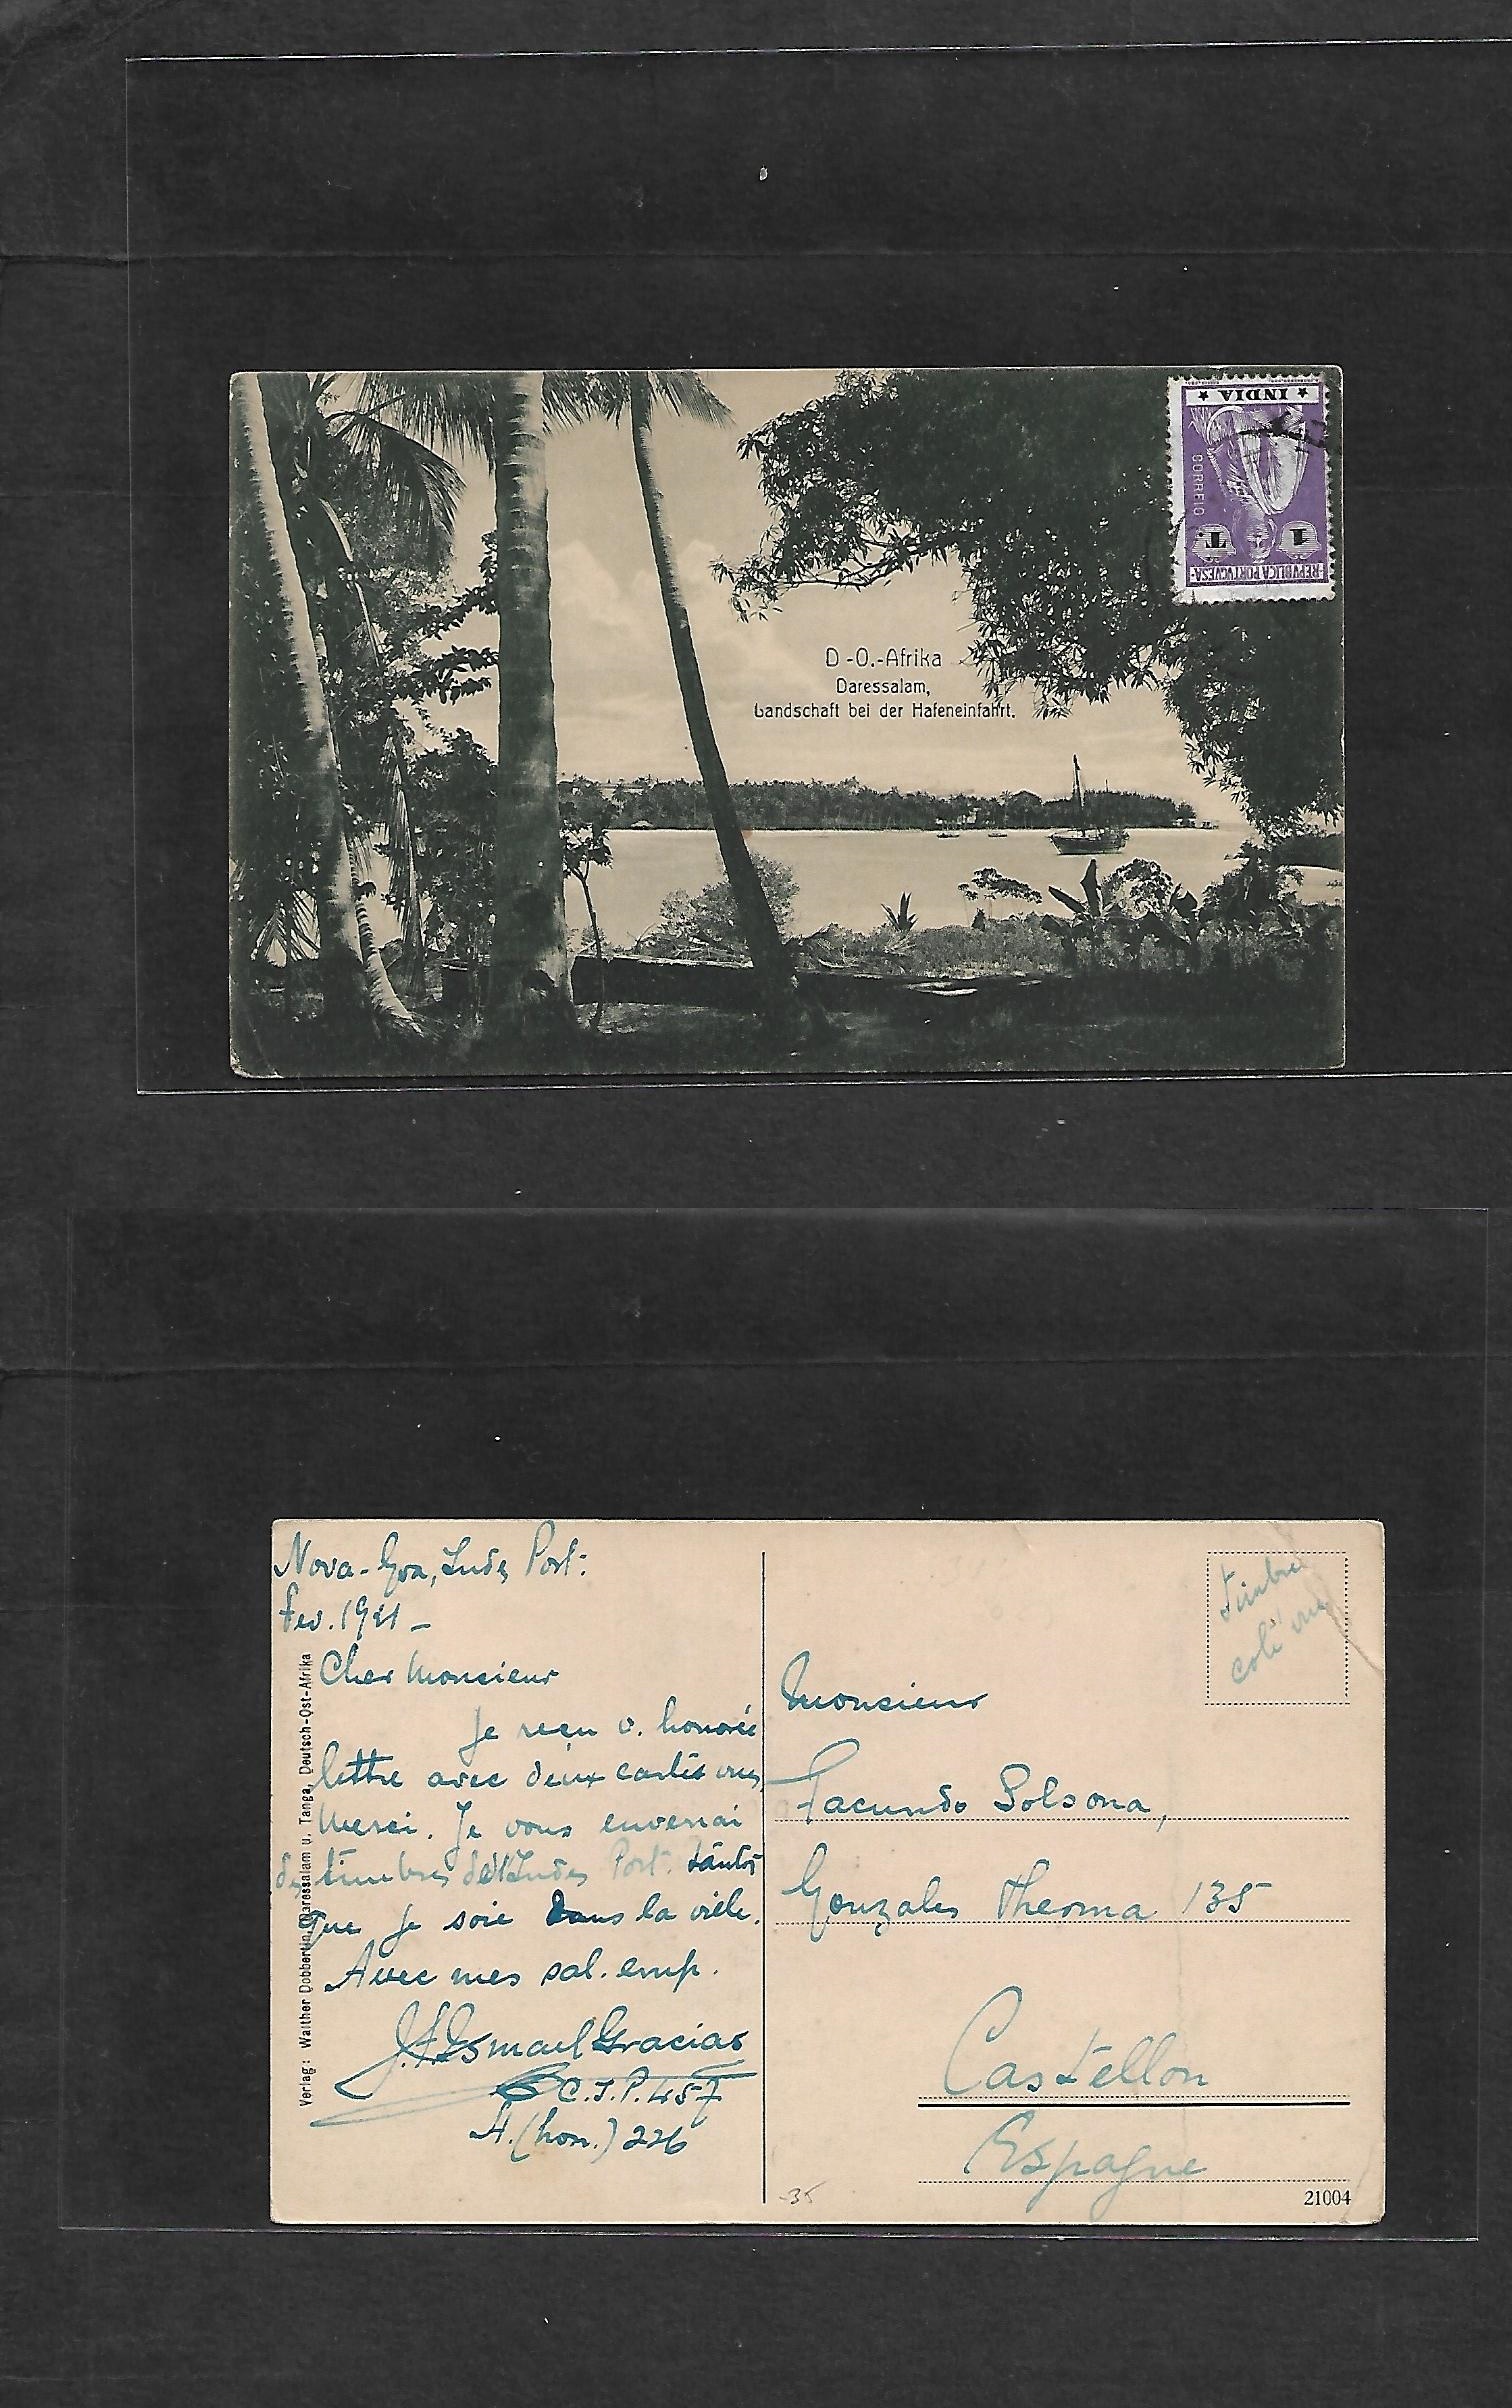 ★ INDIA ★
CORREIO
1 T.
REPUBLICA PORTUGUESA
D.-O.-Afrika
Daressalam,
Landschaft bei der Hafeneinfahrt.
Nova-Goa, Indes Port:
fev. 1921 -
Cher Monsieur
Je reçu v. honorée
lettre avec deux cartes vues
Merci. Je vous enverrai
des timbres de l'Indes Port. tântôt
que je soie dans la ville.
Avec mes sal. emp.
J.A. Ismael Gracias
C.J.P. 457
A. (hon.) 226
Verlag: Walther Dobbertin, Daressalam u. Tanga, Deutsch-Ost-Afrika
timbre
coté vue
Monsieur
Facundo Solsona,
Gonzales Therma 135
Castellon
Espagne
-35
21004